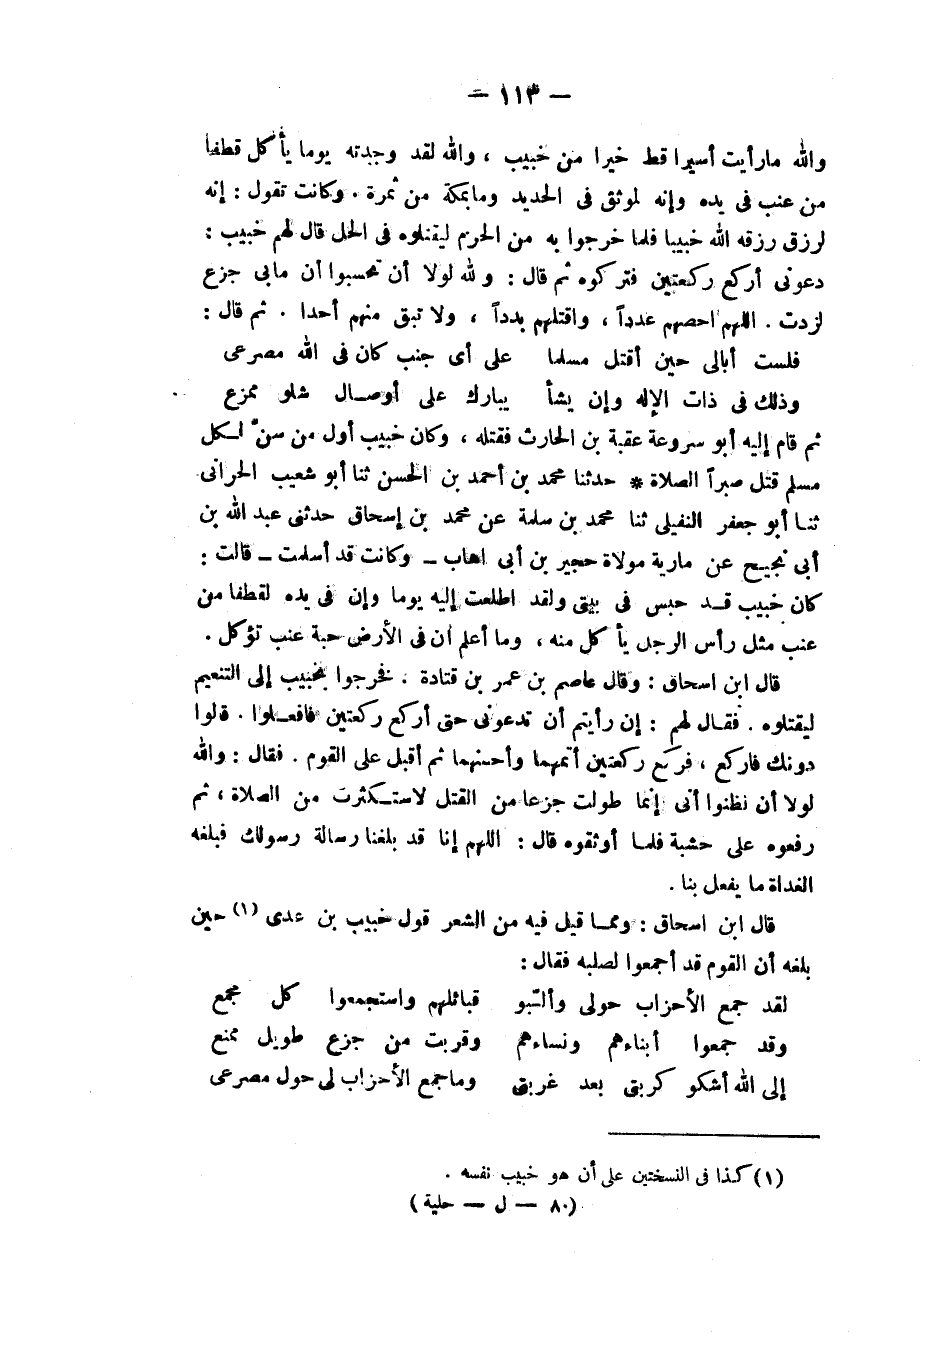 — ١١٣ —
والله ما رأيت أسيرا قط خيرا من خبيب ، والله لقد وجدته يوما يأكل قطفا
من عنب فى يده وإنه لموثق فى الحديد وما بمكة من ثمرة . وكانت تقول : إنه
لرزق رزقه الله خبيبا فلما خرجوا به من الحرم ليقتلوه فى الحل قال لهم خبيب :
دعونى أركع ركعتين فتركوه ثم قال : ولله لولا أن تحسبوا أن مابى جزع
لزدت . اللهم احصهم عدداً ، واقتلهم بدداً ، ولا تبق منهم أحدا . ثم قال :
فلست أبالى حين أقتل مسلما على أى جنب كان فى الله مصرعى
وذلك فى ذات الإله وإن يشأ يبارك على أوصال شلو ممزع
ثم قام إليه أبو سروعة عقبة بن الحارث فقتله ، وكان خبيب أول من سنّ لكل
مسلم قتل صبراً الصلاة * حدثنا محمد بن أحمد بن الحسن ثنا أبو شعيب الحرانى
ثنا أبو جعفر النفيلى ثنا محمد بن سلمة عن محمد بن إسحاق حدثنى عبد الله بن
أبى نجيح عن مارية مولاة حجير بن أبى اهاب ــ وكانت قد أسلمت ــ قالت :
كان خبيب قد حبس فى بيتى ولقد اطلعت إليه يوما وإن فى يده لقطفا من
عنب مثل رأس الرجل يأكل منه ، وما أعلم أن فى الأرض حبة عنب تؤكل .
قال ابن اسحاق : وقال عاصم بن عمر بن قتادة . فخرجوا بخبيب إلى التنعيم
ليقتلوه . فقال لهم : إن رأيتم أن تدعونى حتى أركع ركعتين فافعلوا . قالوا
دونك فاركع ، فركع ركعتين أتمهما وأحسنهما ثم أقبل على القوم . فقال : والله
لولا أن تظنوا أنى إنما طولت جزعا من القتل لاستكثرت من الصلاة ، ثم
رفعوه على خشبة فلما أوثقوه قال : اللهم إنا قد بلغنا رسالة رسولك فبلغه
الغداة ما يفعل بنا .
قال ابن اسحاق : ومما قيل فيه من الشعر قول خبيب بن عدى (١) حين
بلغه أن القوم قد أجمعوا لصلبه فقال :
لقد جمع الأحزاب حولى وألبّوا قبائلهم واستجمعوا كل مجمع
وقد جمعوا أبناءهم ونساءهم وقربت من جزع طويل ممنع
إلى الله أشكو كربتى بعد غربتى وما جمع الأحزاب لى حول مصرعى
(١) كذا فى النسختين على أن هو خبيب نفسه .
(٨٠ — ل — حلية)